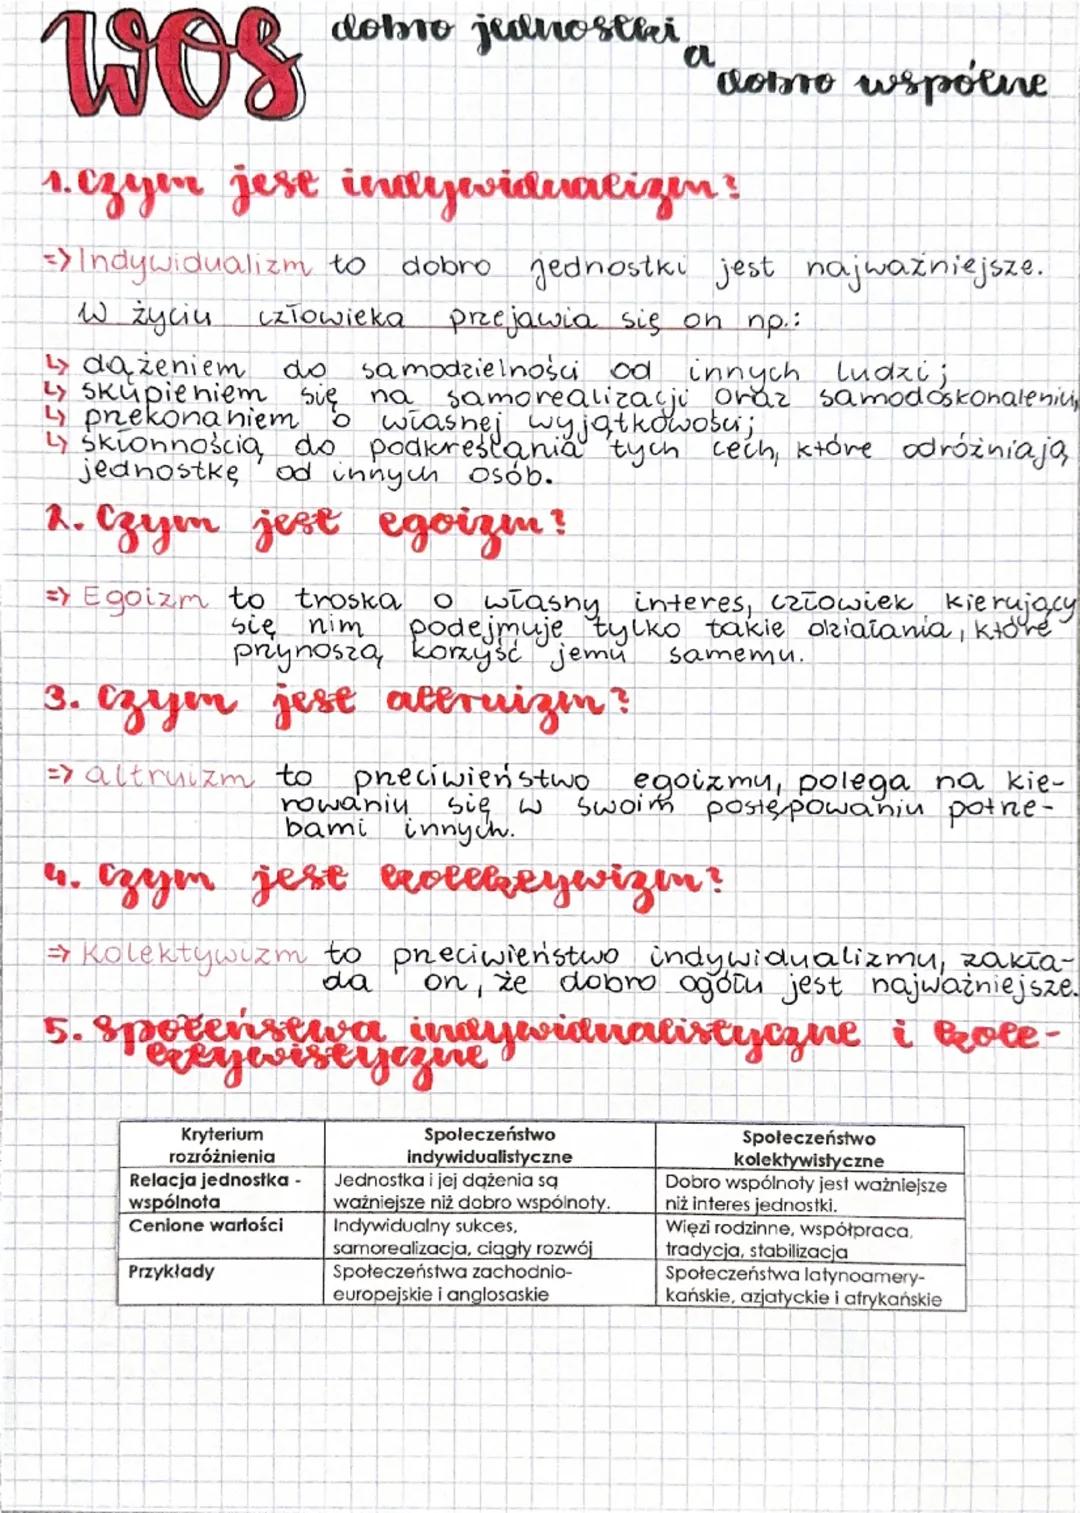 WOS dobro jednostki
a
dobro wspólne
1. Czym jest indywidualizm?
=> Indywidualizm to dobro jednostki jest najważniejsze.
W życiu człowieka przejawia się on np.:
↳ dążeniem do samodzielności od innych ludzi;
↳ skupieniem się na samorealizacji oraz samodoskonaleniu,
↳ przekonaniem o własnej wyjątkowości;
↳ skłonnością do podkreślania tych cech, które odróżniają
jednostkę od innych osób.
2. Czym jest egoizm?
=> Egoizm to troska o własny interes, człowiek kierujący
się nim podejmuje tylko takie działania, które
przynoszą korzyść jemu samemu.
3. Czym jest altruizm?
=> altruizm to przeciwieństwo egoizmu, polega na kie-
rowaniu się w swoim postępowaniu potrze-
bami innych.
4. Czym jest kolektywizm?
=> Kolektywizm to przeciwieństwo indywidualizmu, zakła-
da on, że dobro ogółu jest najważniejsze.
5. Społeństwa indywidualistyczne i kole-
ktywistyczne
Kryterium rozróżnienia
Społeczeństwo indywidualistyczne
Społeczeństwo kolektywistyczne
Relacja jednostka - wspólnota
Jednostka i jej dążenia są
ważniejsze niż dobro wspólnoty.
Dobro wspólnoty jest ważniejsze
niż interes jednostki.
Cenione wartości
Indywidualny sukces,
samorealizacja, ciągły rozwój
Więzi rodzinne, współpraca,
tradycja, stabilizacja
Przykłady
Społeczeństwa zachodnio-
europejskie i anglosaskie
Społeczeństwa latynoamery-
kańskie, azjatyckie i afrykańskie